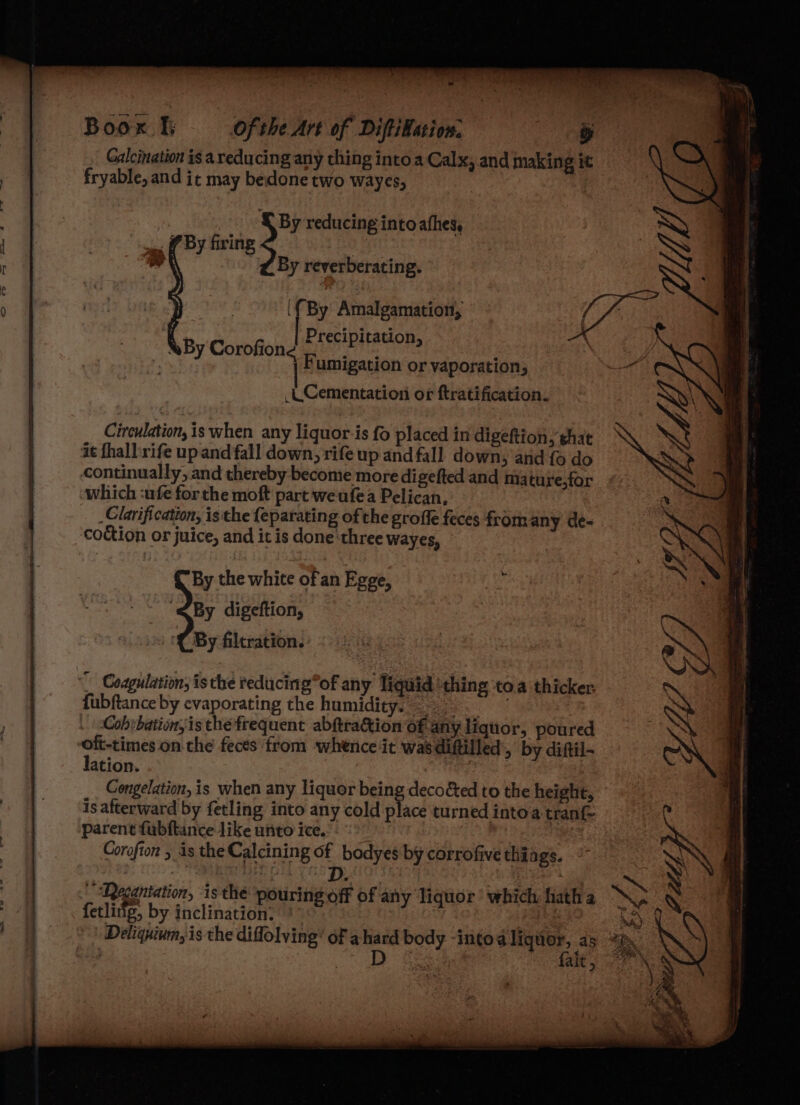 Book I. Of the Art of Diſtillation. 9
Calcination is a reducing any thing into a Calx, and making it
fryable, and it may be done two wayes,
By firing
By reducing into aſhes,
By reverberating.
By Coroſion
By Amalgamation,
Precipitation,
Fumigation or vaporation,
Cementation or ſtratification.
Circulation, is when any liquor is ſo placed in digeſtion, that
it ſhall riſe up and fall down, riſe up and fall down, and ſo do
continually, and thereby become more digeſted and mature, for
which uſe for the moſt part we uſe a Pelican.
Clarification, is the ſeparating of the groſſe feces from any de-
coction or juice, and it is done three wayes,
By the white of an Egge,
By digeſtion,
By filtration.
Coagulation, is the reducing of any liquid thing to a thicker
ſubſtance by evaporating the humidity.
Cohobation, is the frequent abſtraction of any liquor, poured
oft-times on the feces from whence it was diſtilled, by diſtil-
lation.
Congelation, is when any liquor being decocted to the height,
is afterward by ſetling into any cold place turned into a tranſ-
parent ſubſtance like unto ice.
Coroſion, is the Calcining of bodyes by corroſive things.
D.
Decantation, is the pouring off of any liquor which hath a
ſetling, by inclination.
Deliquium, is the diſſolving of a hard body into a liquor, as
D ſalt,